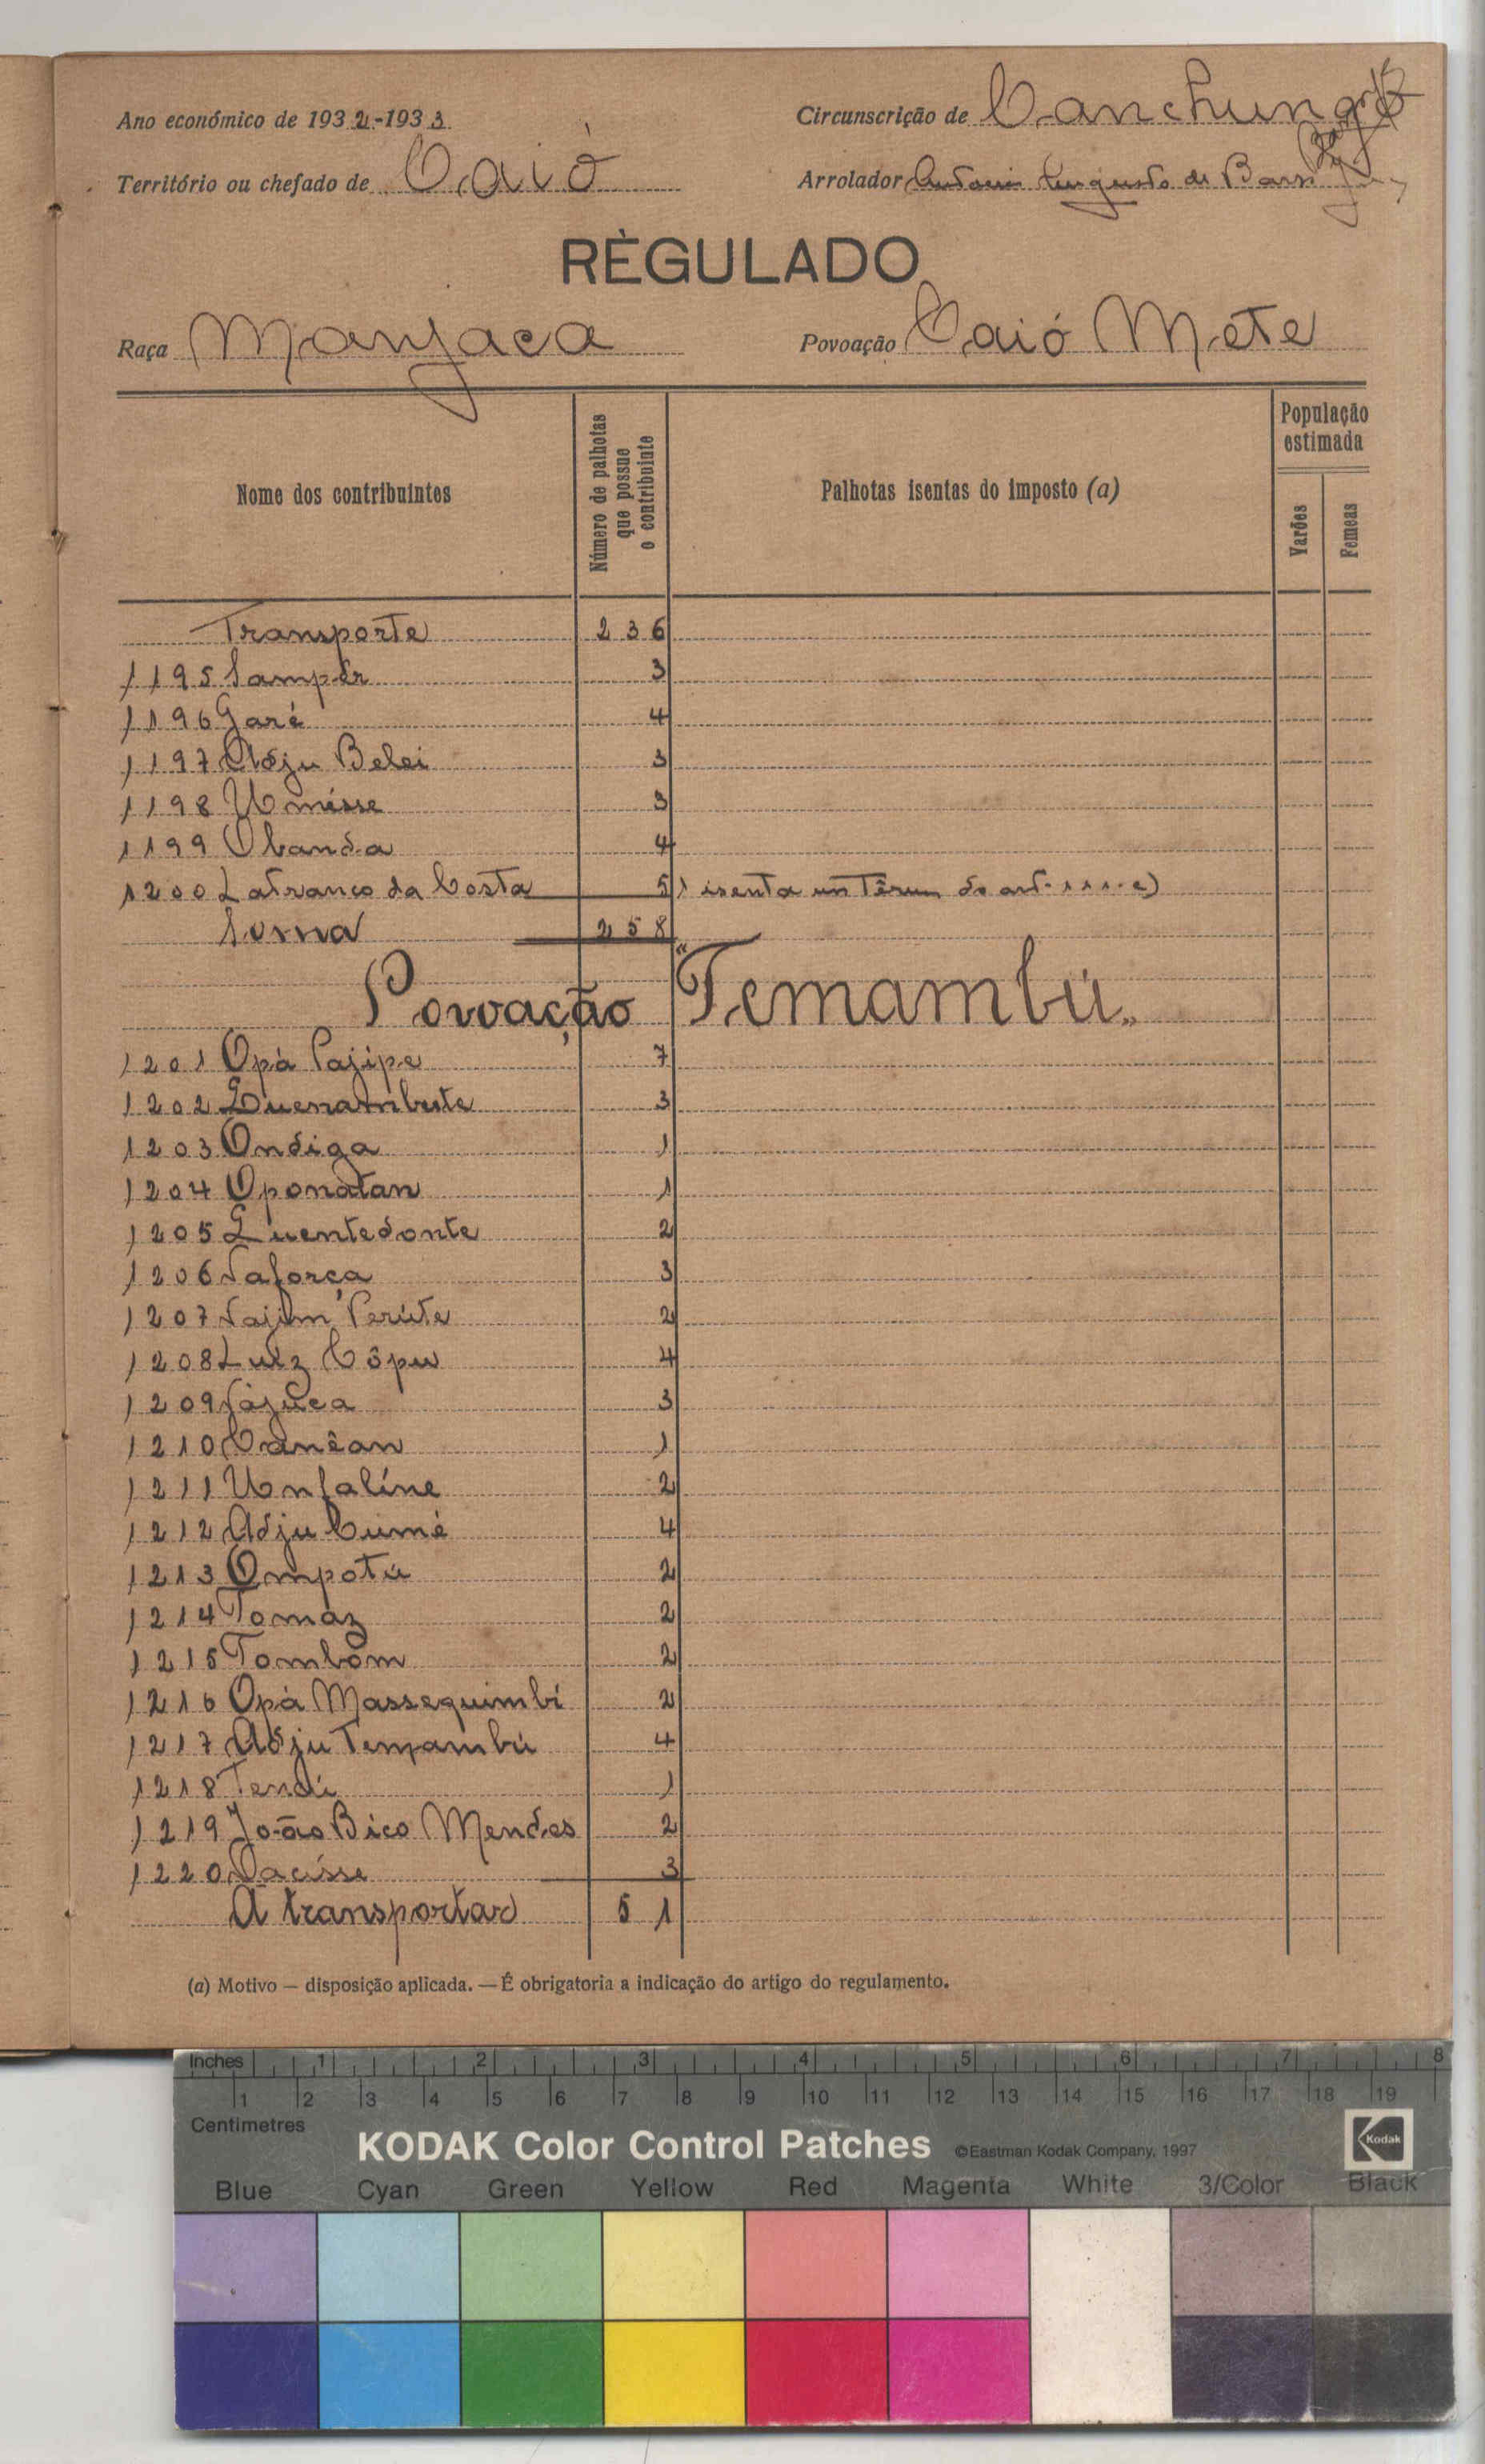 Ano económico de 1932-1933
Circunscrição de Canchungo
Território ou chefado de Caió
Arrolador Antonio Augusto de Barros
RÈGULADO
Raça Manjaca
Povoação Caió Mete
Nome dos contribuintes
Número de palhotas que possue o contribuinte
Palhotas isentas do imposto (a)
População estimada
Varões
Femeas
Transporte 236
1195 Sampér 3
1196 Garé 4
1197 Adju Belei 3
1198 Umísse 3
1199 Obanda 4
1200 Latranco da Costa 5 1 isenta un do art. 111.e)
Soma 258
Povoação "Temambú„
1201 Opá Pajipe 7
1202 Quenambute 3
1203 Ondiga 1
1204 Oponatan 1
1205 Quentedonte 2
1206 Naforça 3
1207 Najim Perúte 2
1208 Luiz Côpu 4
1209 3
1210 1
1211 Unfalíne 2
1212 Adju Cumé 4
1213 Ompotú 2
1214 Tomáz 2
1215 Tombôm 2
1216 Opá Massequimbí 2
1217 Adju Temambú 4
1218 Tendú 1
1219 João Bico Mendes 2
1220 3
A transportar 51
(a) Motivo — disposição aplicada. — É obrigatoria a indicação do artigo do regulamento.
Inches 1 2 3 4 5 6 7 8
1 2 3 4 5 6 7 8 9 10 11 12 13 14 15 16 17 18 19
Centimetres
KODAK Color Control Patches ©Eastman Kodak Company, 1997 Kodak
Blue Cyan Green Yellow Red Magenta White 3/Color Black